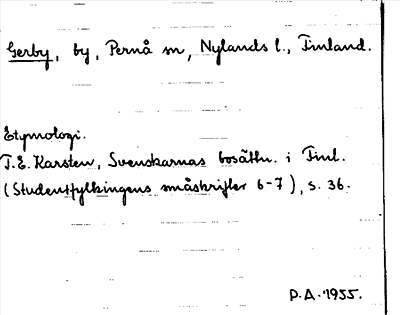 Gerby, by, Pernå sn, Nylands l., Finland.
Etymologi.
T.E. Karsten, Svenskarnas bosättn. i Finl.
(Studentfylkingens småskrifter 6-7), s. 36.
P.A. 1955.